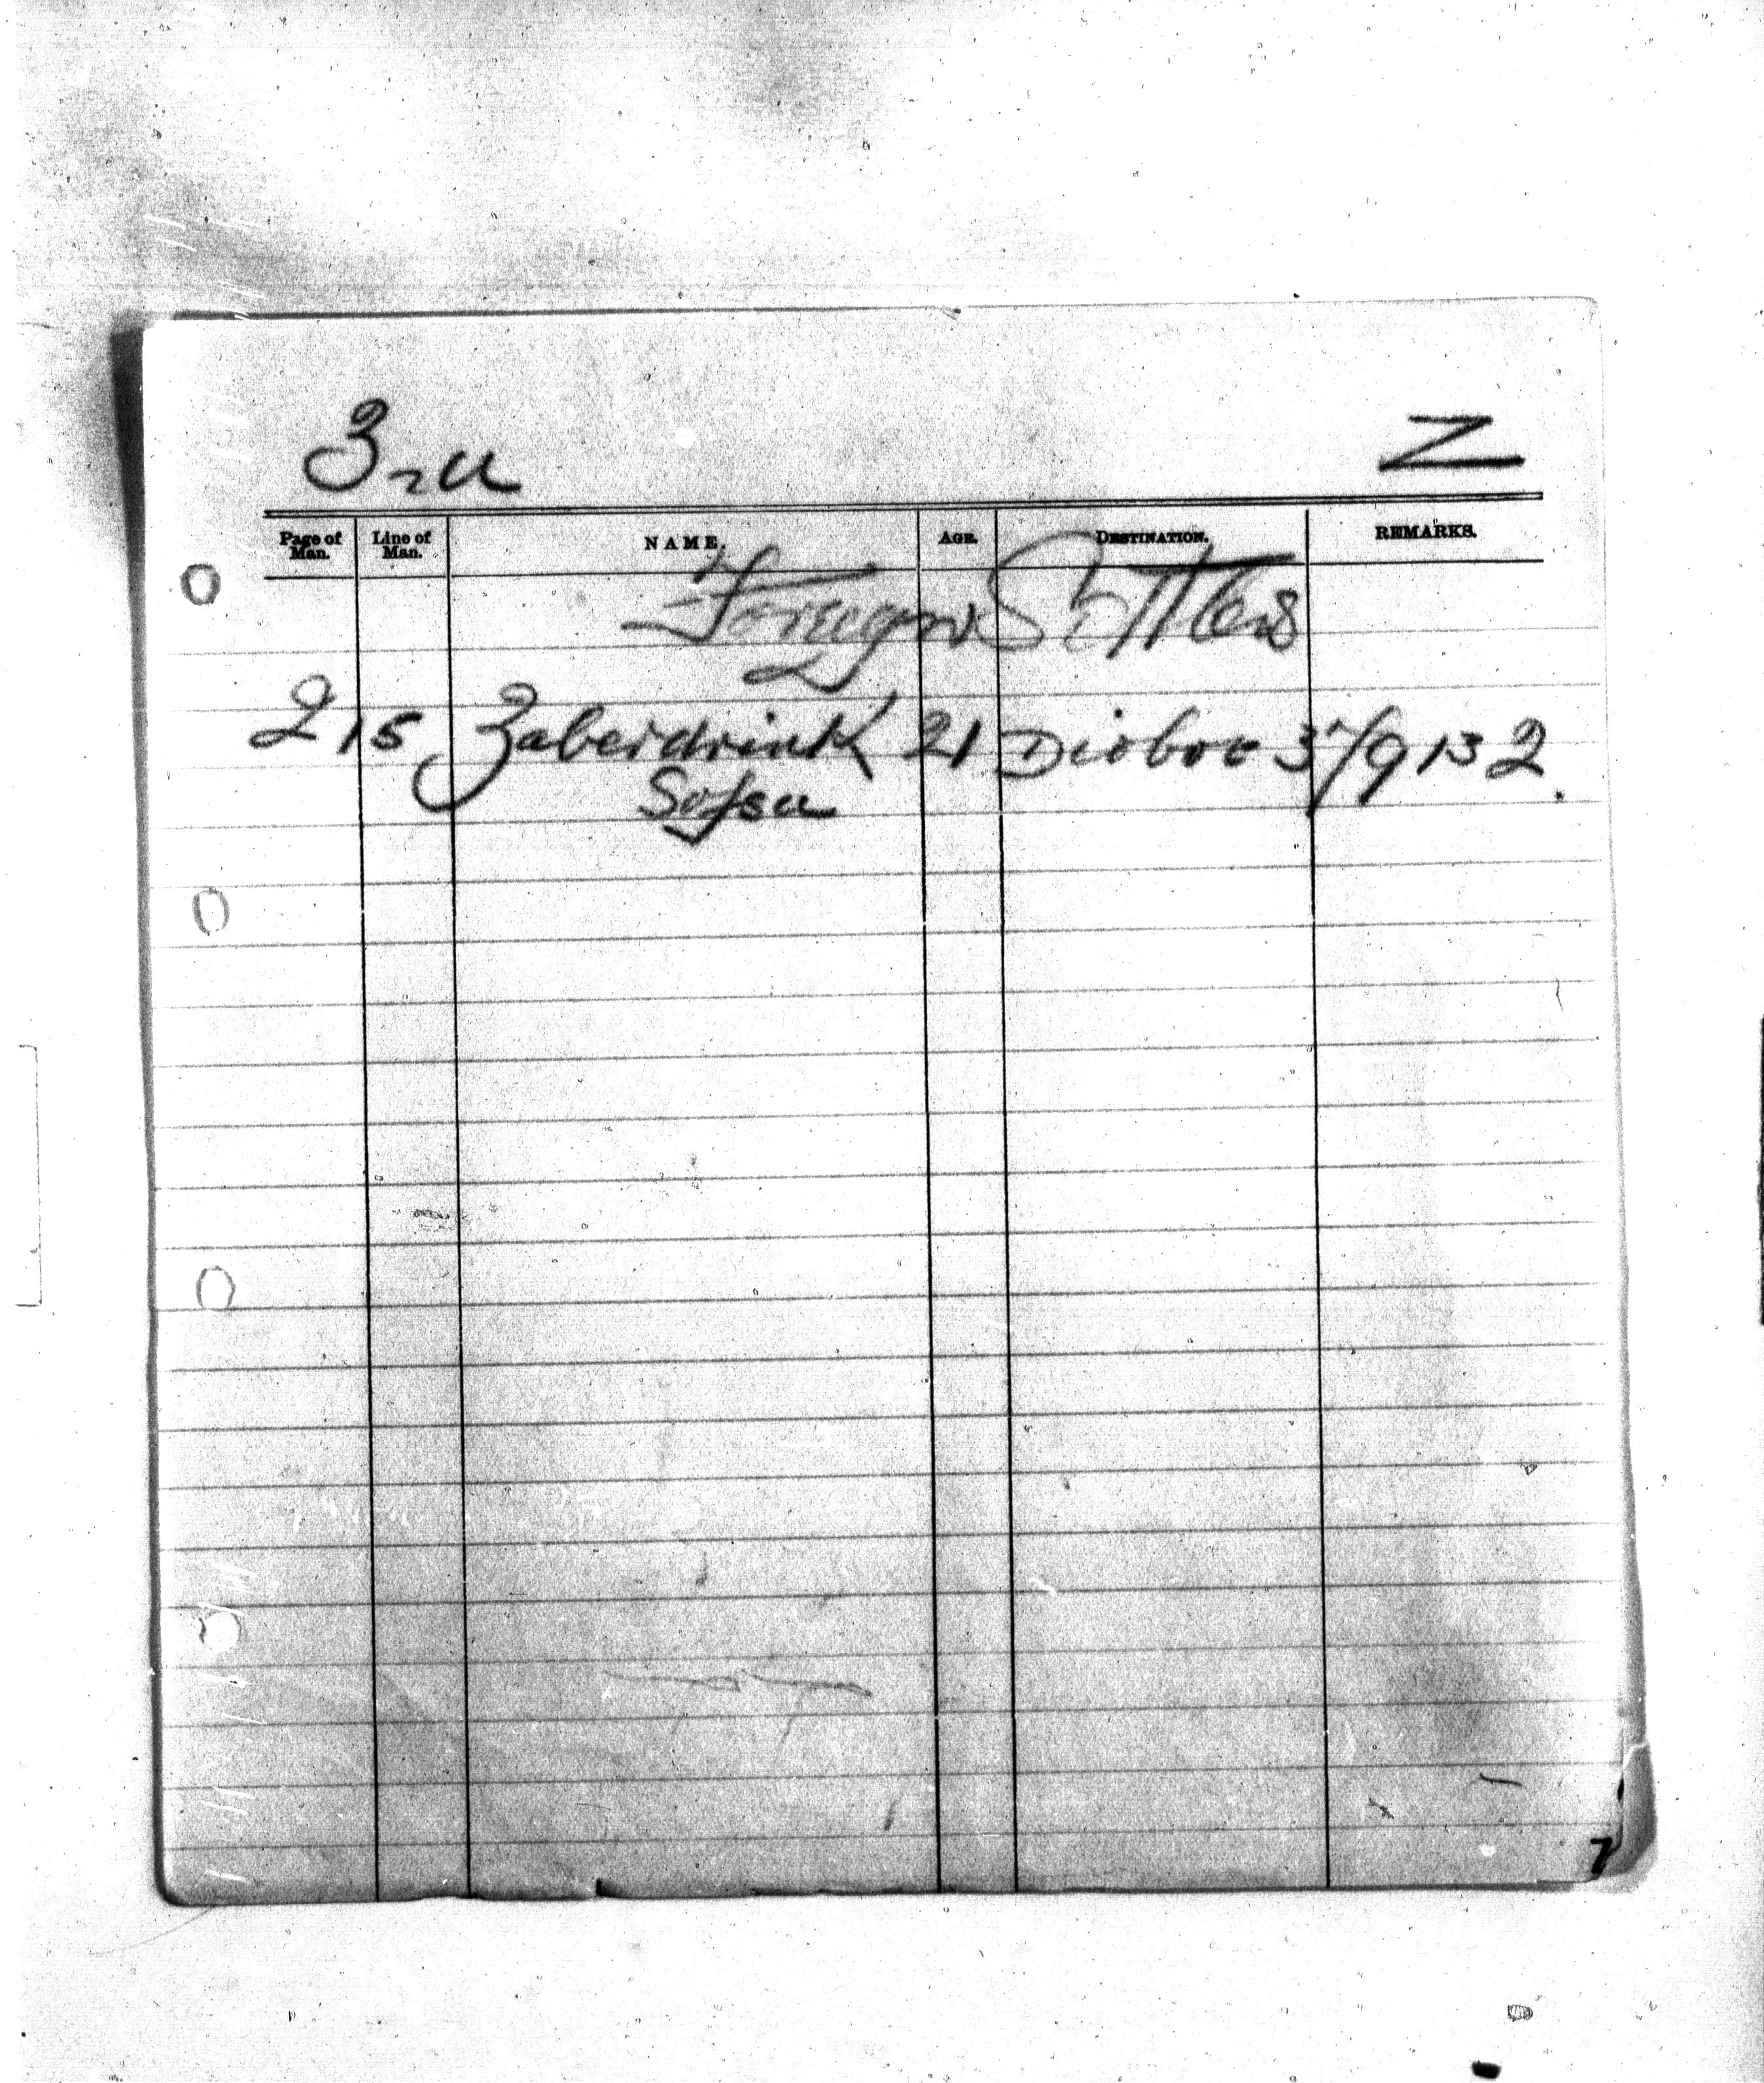 3rd Z
Page of Man. Line of Man. NAME. AGE. DESTINATION. REMARKS.
Foreign Settlers
2 15 Zaberdrink 21 9 13 2